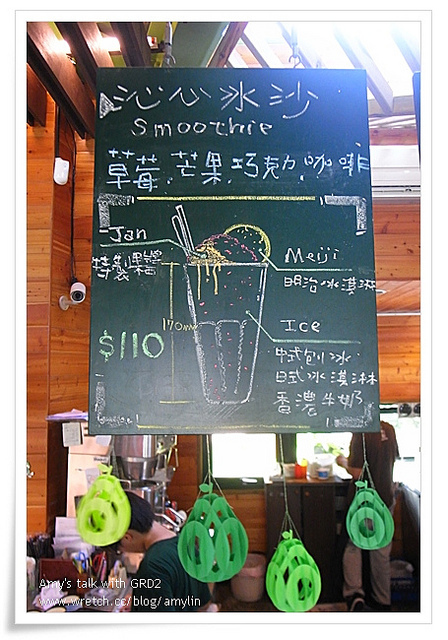 沁心冰沙
Smoothie
草莓.芒果.巧克力.咖啡
Jan
特製果醬
Meiji
明治冰淇淋
170mm
$110
Ice
中式刨冰
日式冰淇淋
香濃牛奶
Amy's talk with GRD2
www.wretch.cc/blog/amylin